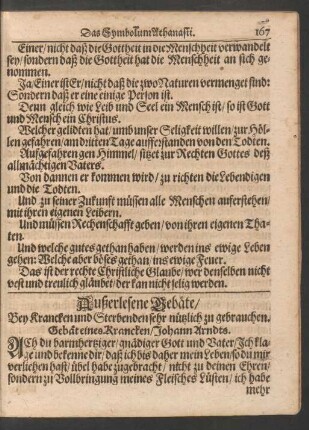 Das Symbolum Athanasii. 167
Einer/ nicht daß die Gottheit in die Menschheit verwandelt
sey/ sondern daß die Gottheit hat die Menschheit an sich ge-
nommen.
Ja/ Einer ist Er/ nicht daß die zwo Naturen vermenget sind:
Sondern daß er eine einige Person ist.
Denn gleich wie Leib und Seel ein Mensch ist/ so ist Gott
und Mensch ein Christus.
Welcher gelidten hat/ umb unser Seligkeit willen/ zur Höl-
len gefahren/ am dritten Tage aufferstanden von den Todten.
Auffgefahren gen Himmel/ sitzet zur Rechten Gottes deß
allmächtigen Vaters.
Von dannen er kommen wird/ zu richten die Lebendigen
und die Todten.
Und zu seiner Zukunfft müssen alle Menschen aufferstehen/
mit ihren eigenen Leibern.
Und müssen Rechenschafft geben/ von ihren eigenen Tha-
ten.
Und welche gutes gethan haben/ werden ins ewige Leben
gehen: Welche aber böses gethan/ ins ewige Feuer.
Das ist der rechte Christliche Glaube/ wer denselben nicht
vest und treulich gläubet/ der kan nicht selig werden.
Außerlesene Gebäte/
Bey Krancken und Sterbenden sehr nützlich zu gebrauchen.
Gebät eines Krancken/ Johann Arndts.
ACh du barmhertziger/ gnädiger Gott und Vater/ Ich kla-
ge und bekenne dir/ daß ich bis daher mein Leben/ so du mir
verliehen hast/ übel habe zugebracht/ nicht zu deinen Ehren/
sondern zu Vollbringung meines Fleisches Lüsten/ ich habe
mehr